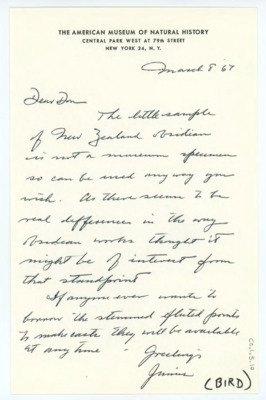 THE AMERICAN MUSEUM OF NATURAL HISTORY
CENTRAL PARK WEST AT 79th STREET
NEW YORK 24, N. Y.
March 8 67
Dear Don
The little sample
of New Zealand obsidian
is not a museum specimen
so can be used any way you
wish. As there seem to be
real differences in the way
obsidian works thought it
might be of interest from
that standpoint
If anyone ever wants to
borrow the stemmed fluted points
to make casts they will be available
at any time
Greetings
Junius
(BIRD)